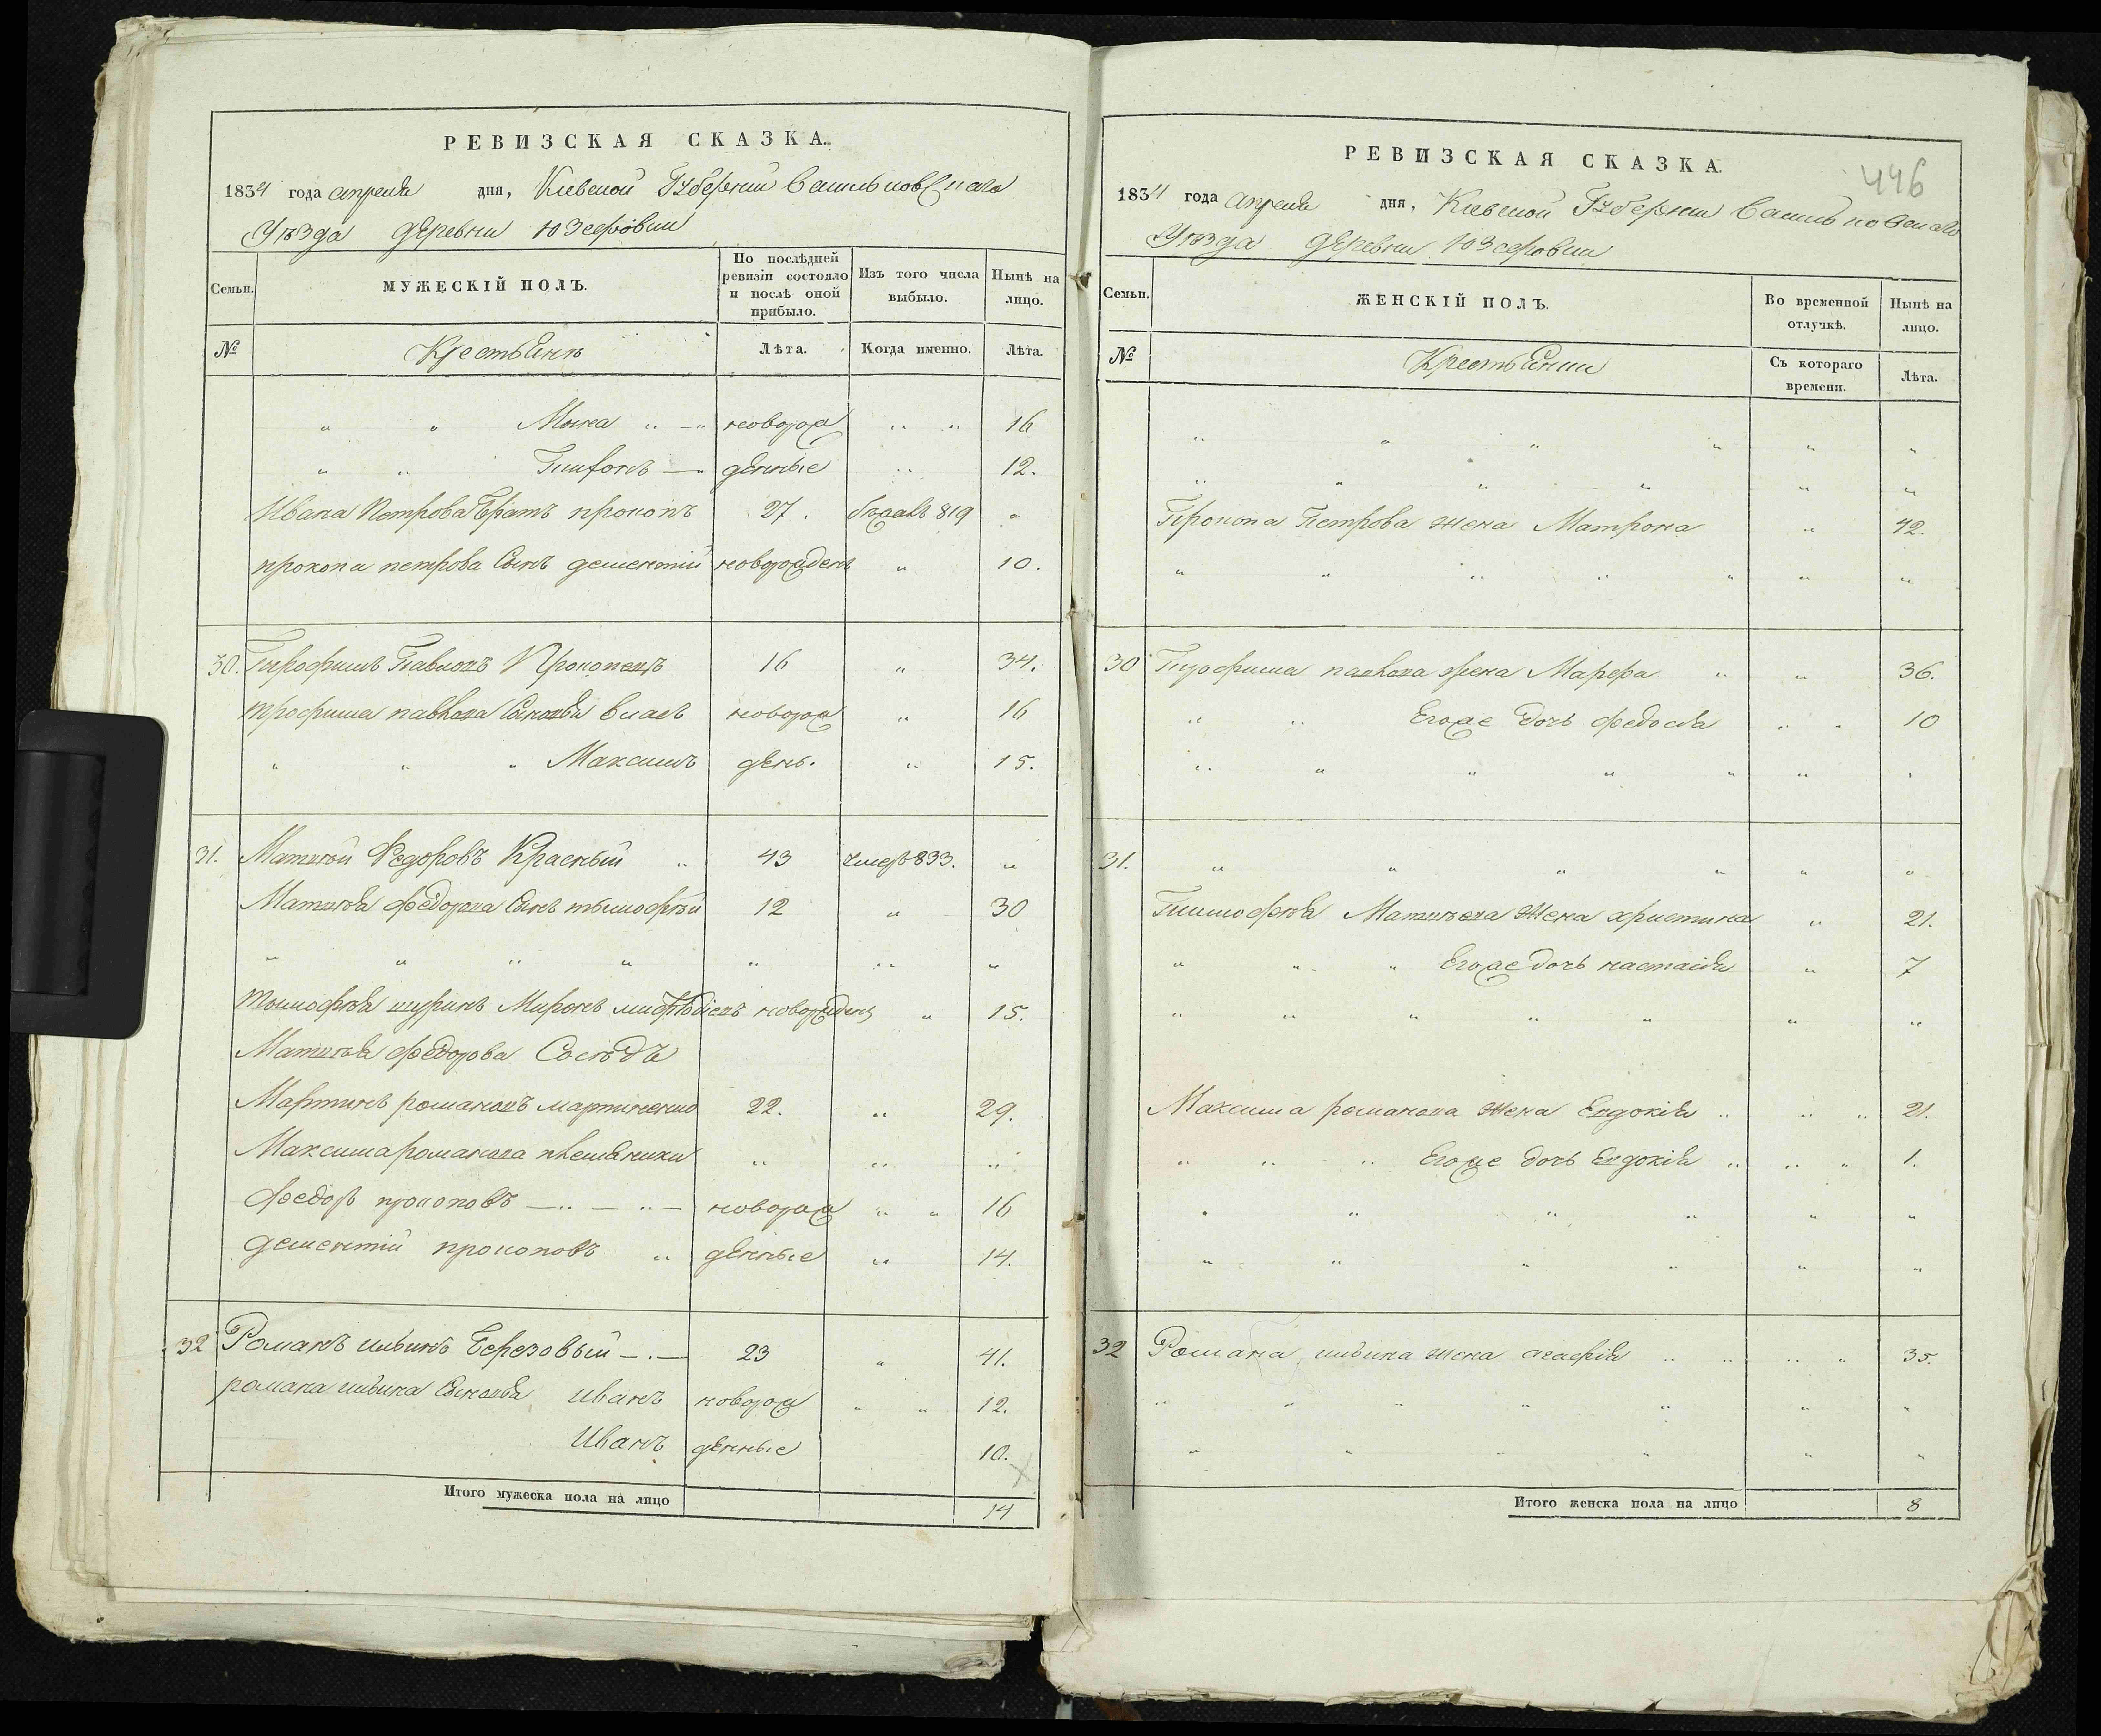 РЕВИЗСКАЯ СКАЗКА.
1834 года апреля дня, Киевской Губернии Васильковскаго
Уѣзда деревни Юзефовки
Семьи. МУЖЕСКІЙ ПОЛЪ. По послѣдней ревизіи состояло и послѣ оной прибыло. Изъ того числа выбыло. Нынѣ на лицо.
№ Крестьянъ Лѣта. Когда именно. Лѣта.
" " Мыка " — " новорож " " 16
" " — " денные " 12.
Ивана Петрова Братъ прокопъ 27. бѣжалъ 819 "
прокопа петрова Сынъ дементій новорожденъ " 10.
30. Трофимъ Павловъ 16 " 34.
трофима павлова Сыновья власъ новорож " 16
" " " Максимъ день. " 15.
31. Матвѣй Федоровъ Красный " 43 умеръ 833. "
Матвѣя федорова Сынъ тымофѣй 12 " 30
" " " " " " "
тымофѣя шуринъ Миронъ новорожденъ " 15.
Матвѣя федорова Сосѣдъ
Мартинъ романовъ мартиненко 22. " 29.
Максима романова племяники " " "
федоръ прокоповъ — " — " — новорож " " 16
дементій прокоповъ " денные " 14.
32 Романъ ильинъ Березовый — . — 23 " 41.
романа ильина Сыновья иванъ новорож " " 12.
Иванъ денные 10.
Итого мужеска пола на лицо 14
446
РЕВИЗСКАЯ СКАЗКА.
1834 года апреля дня, Киевской Губернии Васильковскаго
Уѣзда деревни Юзефовки
Семьи. ЖЕНСКІЙ ПОЛЪ. Во временной отлучкѣ. Нынѣ на лицо.
№ Крестьянки Съ котораго времени. Лѣта.
" " " " " "
" " " " " "
Прокопа Петрова жена Матрона " 42.
" " " " " " "
30 павлова жена Марфа " " 36.
" " Егоже дочь федосія " " 10
" " " " " " "
31. " " " " " "
Тимофѣя Матвѣева жена христина " 21.
" " " Егоже дочь настасія " 7
" " " " " " "
Максима романова жена Евдокія " " " 21.
" " " Егоже дочь Евдокія " " " 1.
" " " " " "
" " " " " "
32 Романа ильина жена агафія " " " " 35.
" " " " " " "
" " " " " "
Итого женска пола на лицо 8